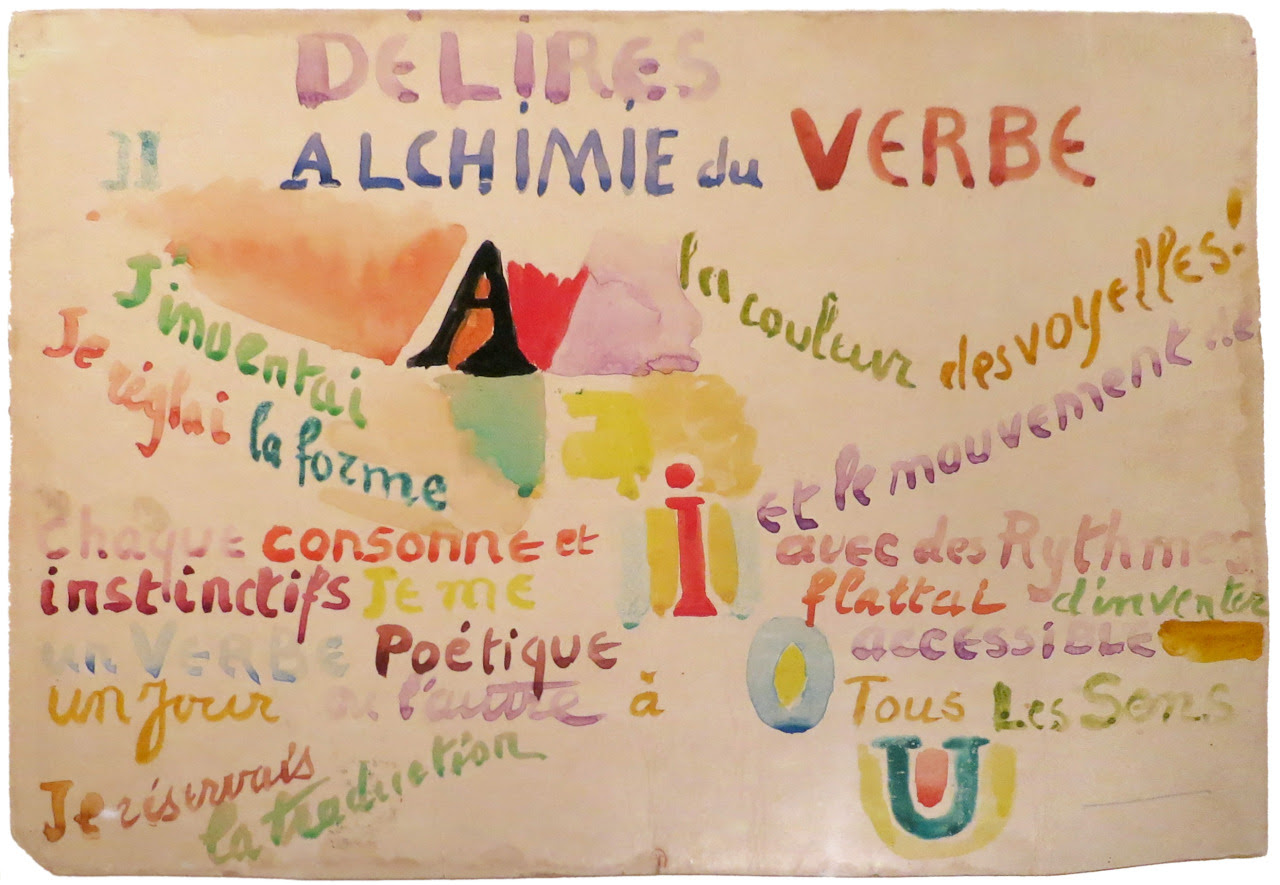 DÉLIRES
II ALCHIMIE du VERBE
J'inventai A la couleur des voyelles!
Je réglai la forme et le mouvement de
Chaque consonne et i avec des Rythmes
instinctifs Je me flattai d'inventer
un VERBE Poétique accessiBLE
un Jour ou l'autre à O Tous Les Sens
U
Je réservais
la traduction